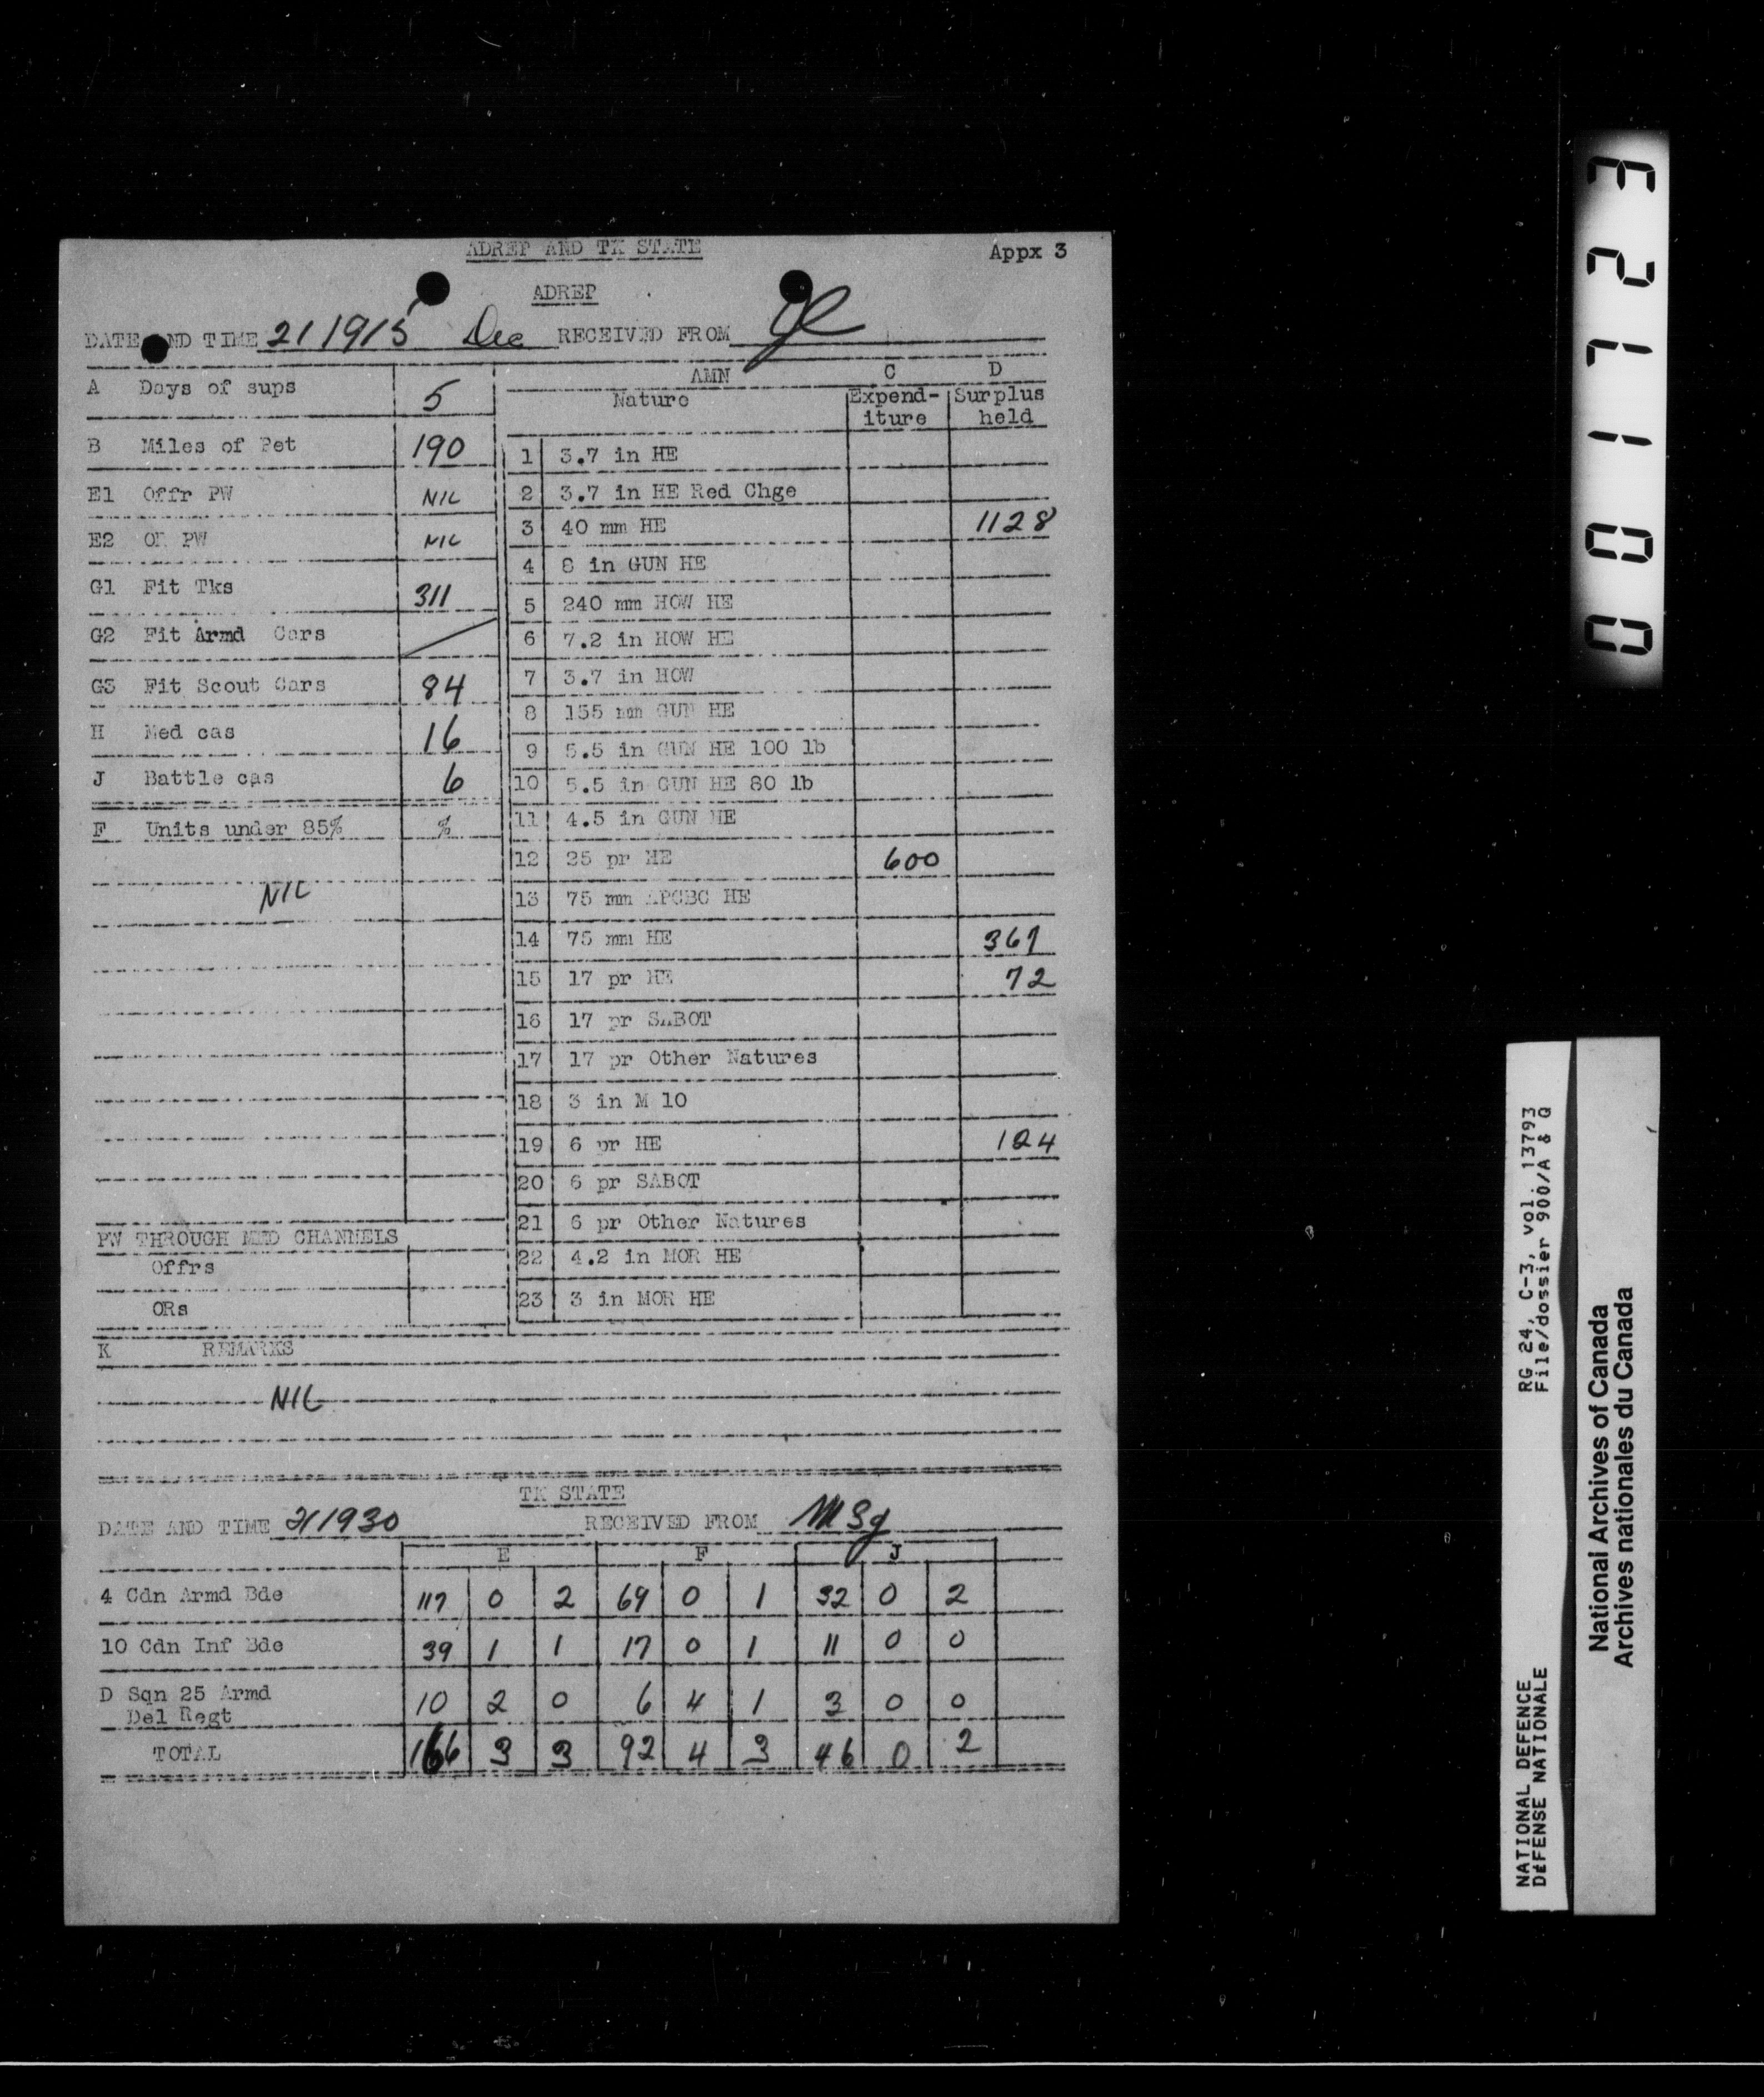 ADREP AND TK STATE Appx 3
ADREP
DATE AND TIME 211915 Dec RECEIVED FROM
A Days of sups 5
B Miles of Pet 190
E1 Offr PW NIL
E2 OR PW NIL
G1 Fit Tks 311
G2 Fit Armd Cars
G3 Fit Scout Cars 84
H Med cas 16
J Battle cas 6
F Units under 85% %
NIL
PW THROUGH MED CHANNELS
Offrs
ORs
AMN C D
Nature Expend- Surplus
iture held
1 3.7 in HE
2 3.7 in HE Red Chge
3 40 mm HE 1128
4 8 in GUN HE
5 240 mm HOW HE
6 7.2 in HOW HE
7 3.7 in HOW
8 155 mm GUN HE
9 5.5 in GUN HE 100 lb
10 5.5 in GUN HE 80 lb
11 4.5 in GUN HE
12 25 pr HE 600
13 75 mm APCBC HE
14 75 mm HE 361
15 17 pr HE 72
16 17 pr SABOT
17 17 pr Other Natures
18 3 in M 10
19 6 pr HE 124
20 6 pr SABOT
21 6 pr Other Natures
22 4.2 in MOR HE
23 3 in MOR HE
K REMARKS
NIL
TK STATE
DATE AND TIME 211930 RECEIVED FROM
E F J
4 Cdn Armd Bde 117 0 2 69 0 1 32 0 2
10 Cdn Inf Bde 39 1 1 17 0 1 11 0 0
D Sqn 25 Armd
Del Regt 10 2 0 6 4 1 3 0 0
TOTAL 166 3 3 92 4 3 46 0 2
001723
RG 24, C-3, vol. 13793
File/dossier 900/A & Q
NATIONAL DEFENCE
DÉFENSE NATIONALE
National Archives of Canada
Archives nationales du Canada